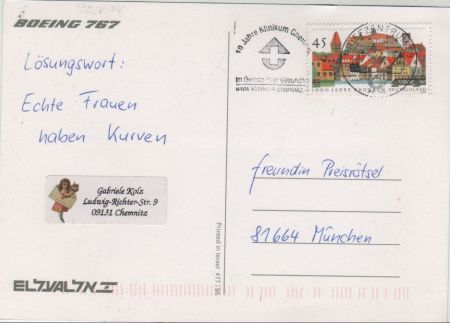 BOEING 767
Lösungswort:
Echte Frauen
haben Kurven
Gabriele Kolz
Ludwig-Richter-Str. 9
09131 Chemnitz
ELAL אל על
Printed in Israel 417/96
10 Jahre Klinikum Chemnitz
Im Dienste Ihrer Gesundheit
www.klinikum-chemnitz.
BRIEFZENTRUM
45
1000 JAHRE KRONACH DEUTSCHLAND
freundin Preisrätsel
81664 München